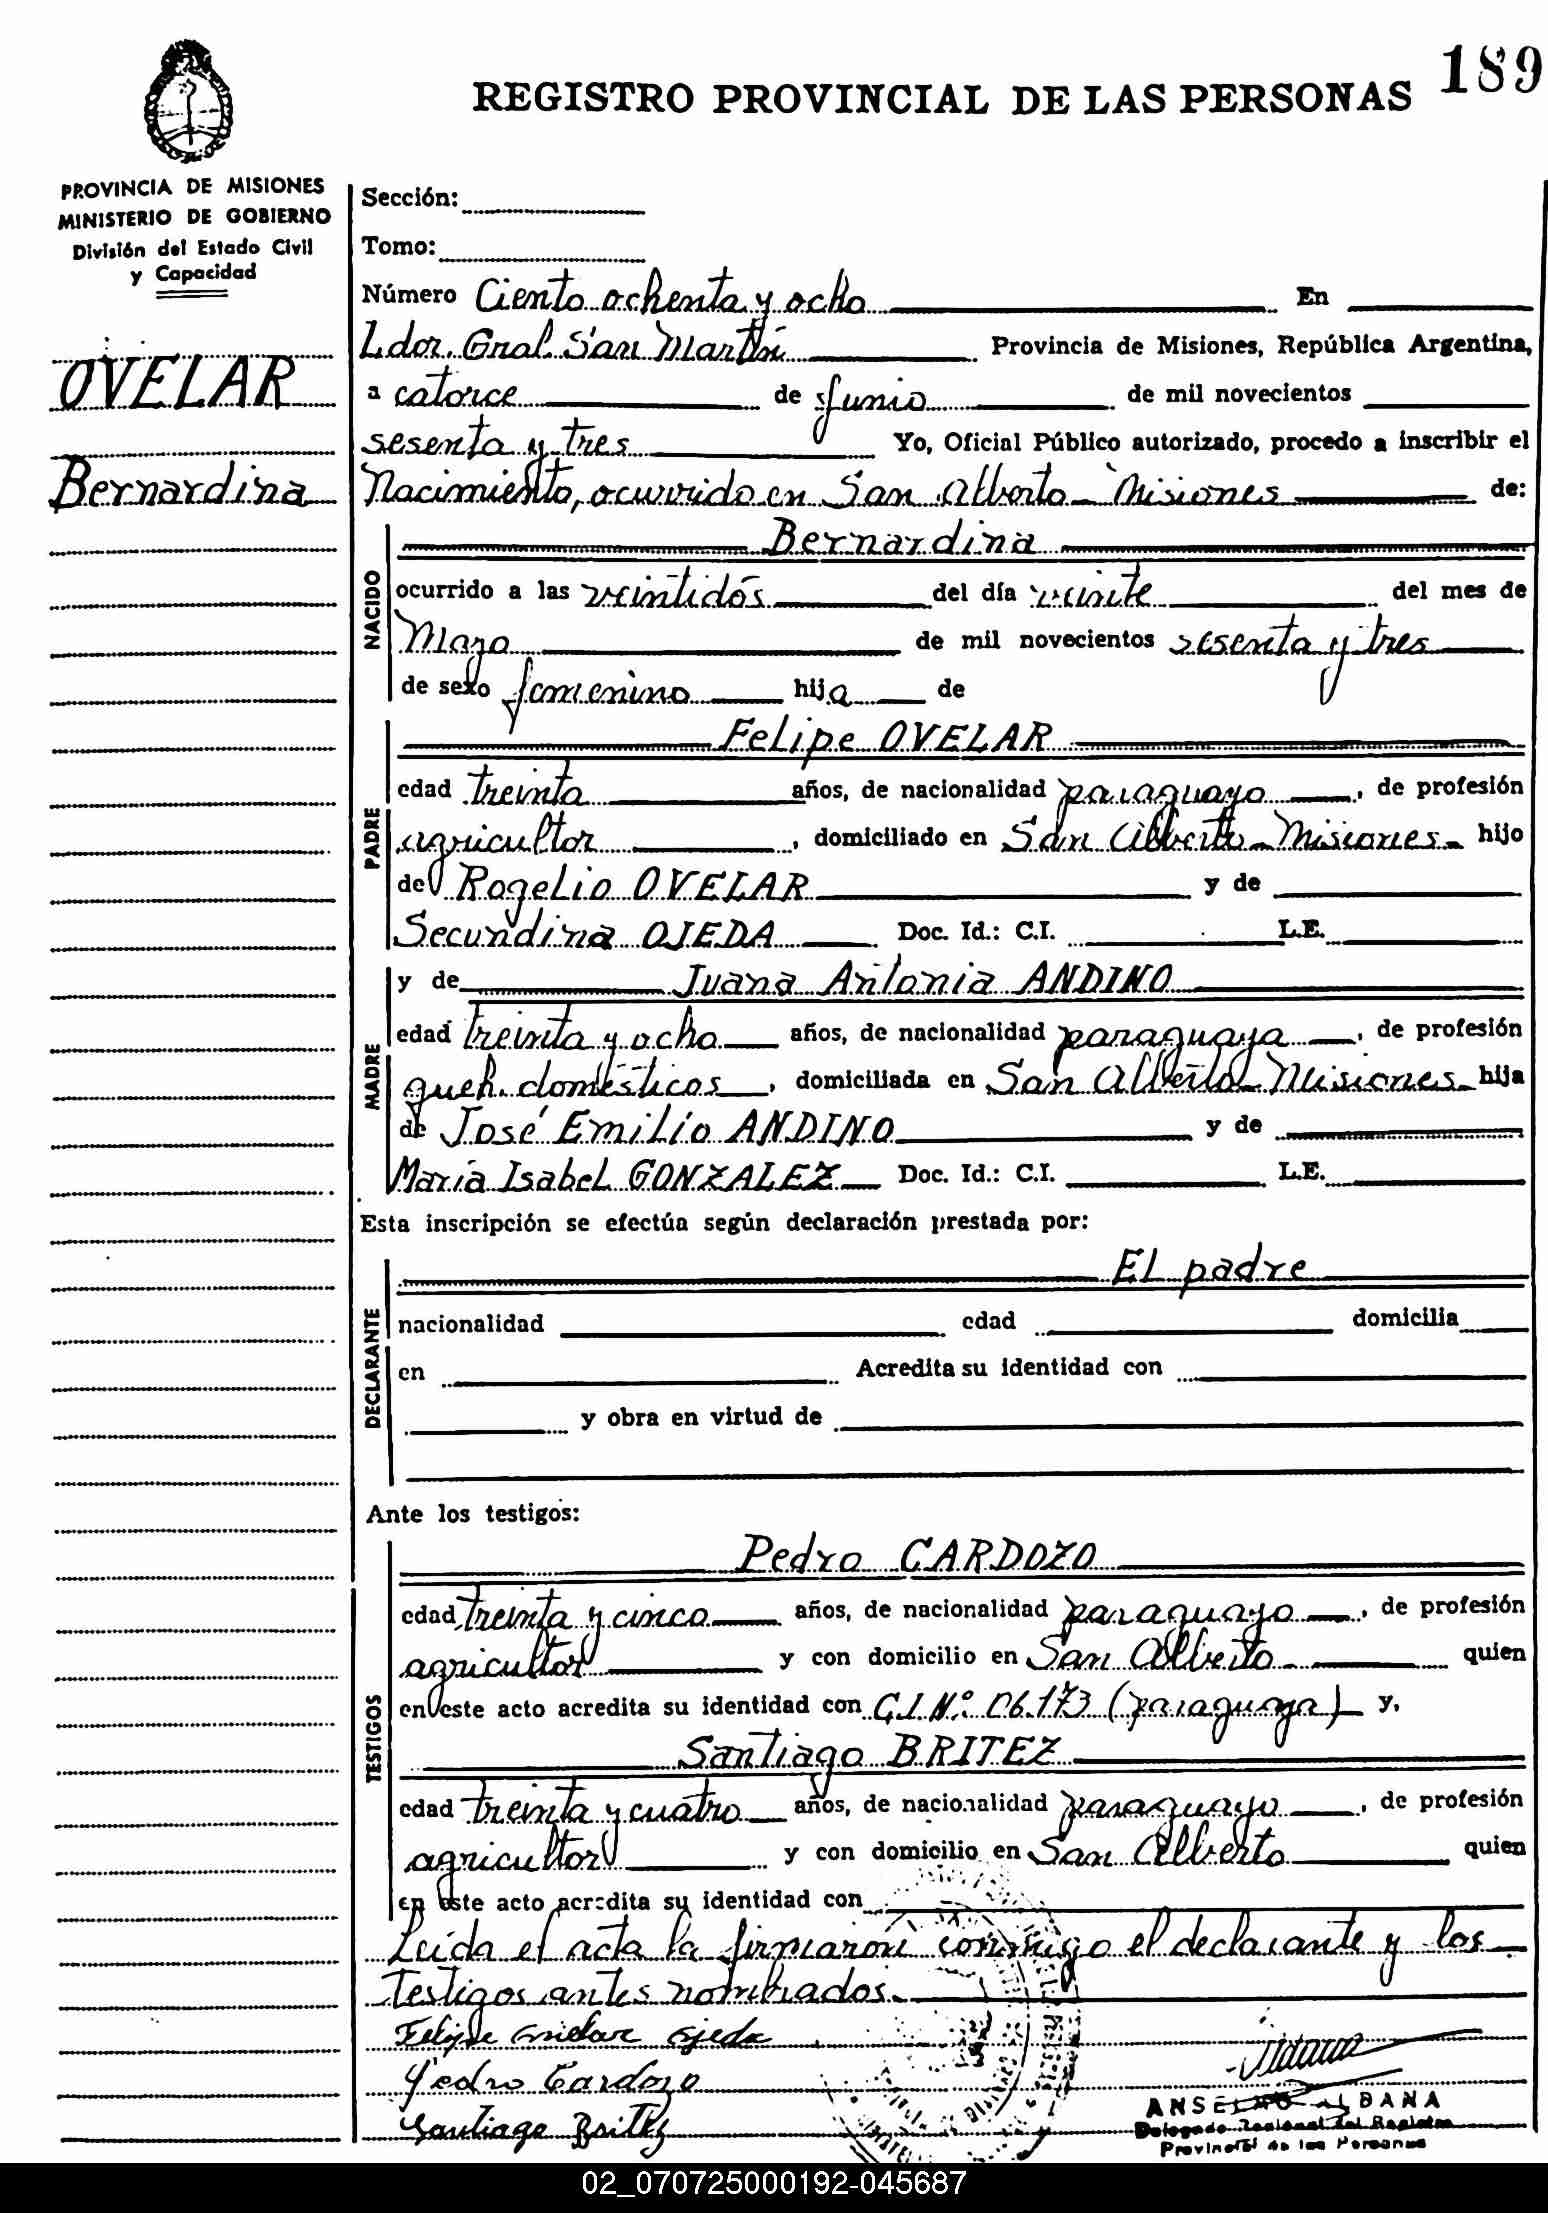 189
REGISTRO PROVINCIAL DE LAS PERSONAS
PROVINCIA DE MISIONES
MINISTERIO DE GOBIERNO
División del Estado Civil
y Capacidad
OVELAR
Bernardina
Sección:
Tomo:
Número Ciento ochenta y ocho En
Ldor. Gral. San Martín Provincia de Misiones, República Argentina,
a catorce de Junio de mil novecientos
sesenta y tres Yo, Oficial Público autorizado, procedo a inscribir el
Nacimiento, ocurrido en San Alberto - Misiones de:
NACIDO
Bernardina
ocurrido a las veintidós del día veinte del mes de
Mayo de mil novecientos sesenta y tres
de sexo femenino hija de
PADRE
Felipe OVELAR
edad treinta años, de nacionalidad paraguayo, de profesión
agricultor, domiciliado en San Alberto - Misiones - hijo
de Rogelio OVELAR y de
Secundina OJEDA Doc. Id.: C.I. L.E.
MADRE
y de Juana Antonia ANDINO
edad treinta y ocho años, de nacionalidad paraguaya, de profesión
queh. domésticos, domiciliada en San Alberto - Misiones - hija
de José Emilio ANDINO y de
María Isabel GONZALEZ Doc. Id.: C.I. L.E.
Esta inscripción se efectúa según declaración prestada por:
DECLARANTE
El padre
nacionalidad edad domicilia
en Acredita su identidad con
y obra en virtud de
Ante los testigos:
TESTIGOS
Pedro CARDOZO
edad treinta y cinco años, de nacionalidad paraguayo, de profesión
agricultor y con domicilio en San Alberto - quien
en este acto acredita su identidad con C.I. Nº 06.173 (paraguaya) y,
Santiago BRITEZ
edad treinta y cuatro años, de nacionalidad paraguayo, de profesión
agricultor y con domicilio en San Alberto quien
en este acto acredita su identidad con
Leída el acta la firmaron conmigo el declarante y los
testigos antes nombrados.
Felipe Ovelar Ojeda
Pedro Cardozo
Santiago Britez
ANSELMO ALDANA
Delegado Regional del Registro
Provincial de las Personas
02_070725000192-045687